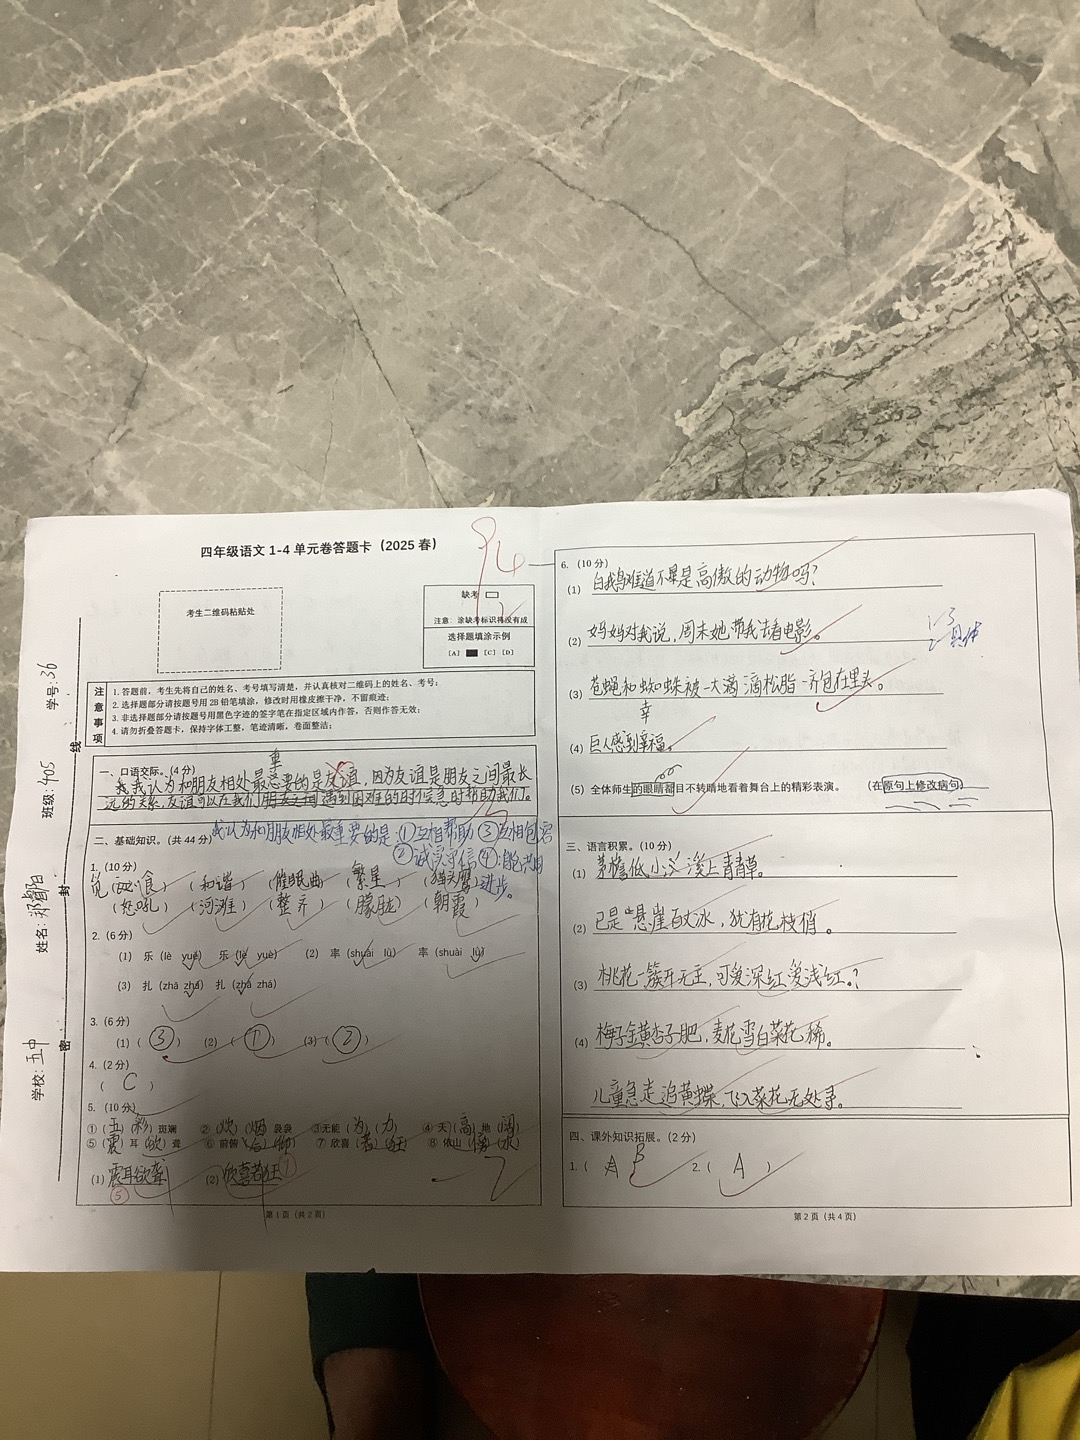 四年级语文1-4单元卷答题卡（2025春）
94
考生二维码粘贴处
缺考
注意：涂缺考标识将没有成
选择题填涂示例
[A] [C] [D]
注意事项
1. 答题前，考生先将自己的姓名、考号填写清楚，并认真核对二维码上的姓名、考号；
2. 选择题部分请按题号用2B铅笔填涂，修改时用橡皮擦干净，不留痕迹；
3. 非选择题部分请按题号用黑色字迹的签字笔在指定区域内作答，否则作答无效；
4. 请勿折叠答题卡，保持字体工整，笔迹清晰，卷面整洁；
学号：36
班级：405
姓名：
学校：五中
密 封 线
一、口语交际。（4分）
我认为和朋友相处最重要的是友谊，因为友谊是朋友之间最长
远的关系，友谊可以在我们遇到困难的时候及时帮助我们。
二、基础知识。（共44分）
我认为和朋友相处最重要的是①互相帮助③互相包容
②诚实守信④
进步。
1.（10分）
觅 （食） （和谐） （催眠曲） （繁星） （猫头鹰）
（怒吼） （河滩） （整齐） （朦胧） （朝霞）
2.（6分）
（1） 乐（lè yuè） 乐（lè yuè） （2） 率（shuài lǜ） 率（shuài lǜ）
（3） 扎（zhā zhá） 扎（zhā zhá）
3.（6分）
（1）（③） （2）（①） （3）（②）
4.（2分）
（ C ）
5.（10分）
①（五）（彩）斑斓 ②（炊）（烟）袅袅 ③无能（为）（力） ④天（高）地（阔）
⑤（震）耳（欲）聋 ⑥前俯（后）（仰） ⑦欣喜（若）（狂） ⑧依山（傍）（水）
（1）震耳欲聋 （2）欣喜若狂
⑤
第1页（共2页）
6.（10分）
（1） 白鹅难道不是高傲的动物吗？
（2） 妈妈对我说，周末她带我去看电影。
具体
（3） 苍蝇和蜘蛛被一大滴松脂一齐包在里头。
幸
（4） 巨人感到幸福。
（5） 全体师生的眼睛都目不转睛地看着舞台上的精彩表演。 （在原句上修改病句）
三、语言积累。（10分）
（1） 茅檐低小，溪上青青草。
（2） 已是悬崖百丈冰，犹有花枝俏。
（3） 桃花一簇开无主，可爱深红爱浅红？
（4） 梅子金黄杏子肥，麦花雪白菜花稀。
儿童急走追黄蝶，飞入菜花无处寻。
四、课外知识拓展。（2分）
1.（ A B ） 2.（ A ）
第2页（共4页）